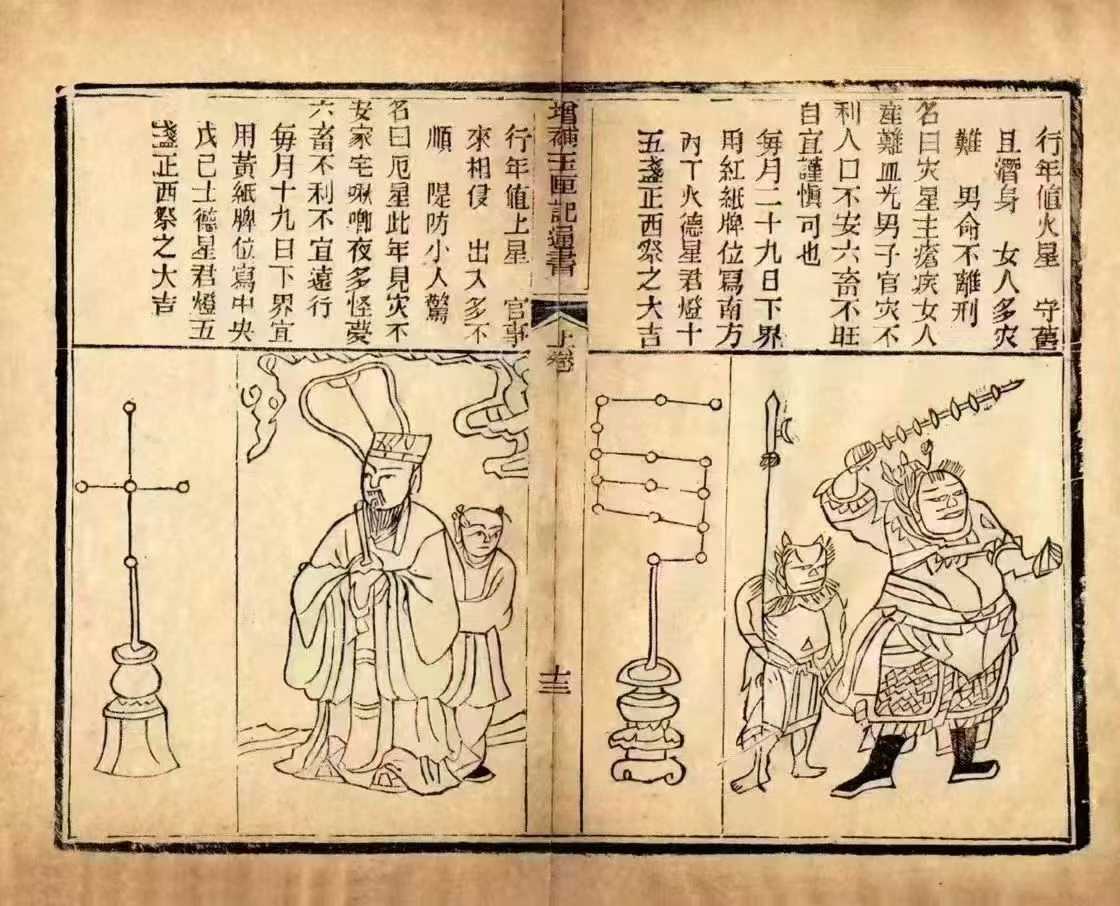 行年值火星　守舊
且潛身　女人多灾
難　男命不離刑
名曰灾星主瘡疾女人
產難血光男子官灾不
利人口不安六畜不旺
自宜謹慎可也
每月二十九日下界
用紅紙牌位寫南方
丙丁火德星君燈十
五盞正西祭之大吉
增補玉匣記通書
上卷
十三
行年值土星　官事
來相侵　出入多不
順　隄防小人驚
名曰厄星此年見灾不
安家宅啾唧夜多怪夢
六畜不利不宜遠行
每月十九日下界宜
用黃紙牌位寫中央
戊己土德星君燈五
盞正西祭之大吉